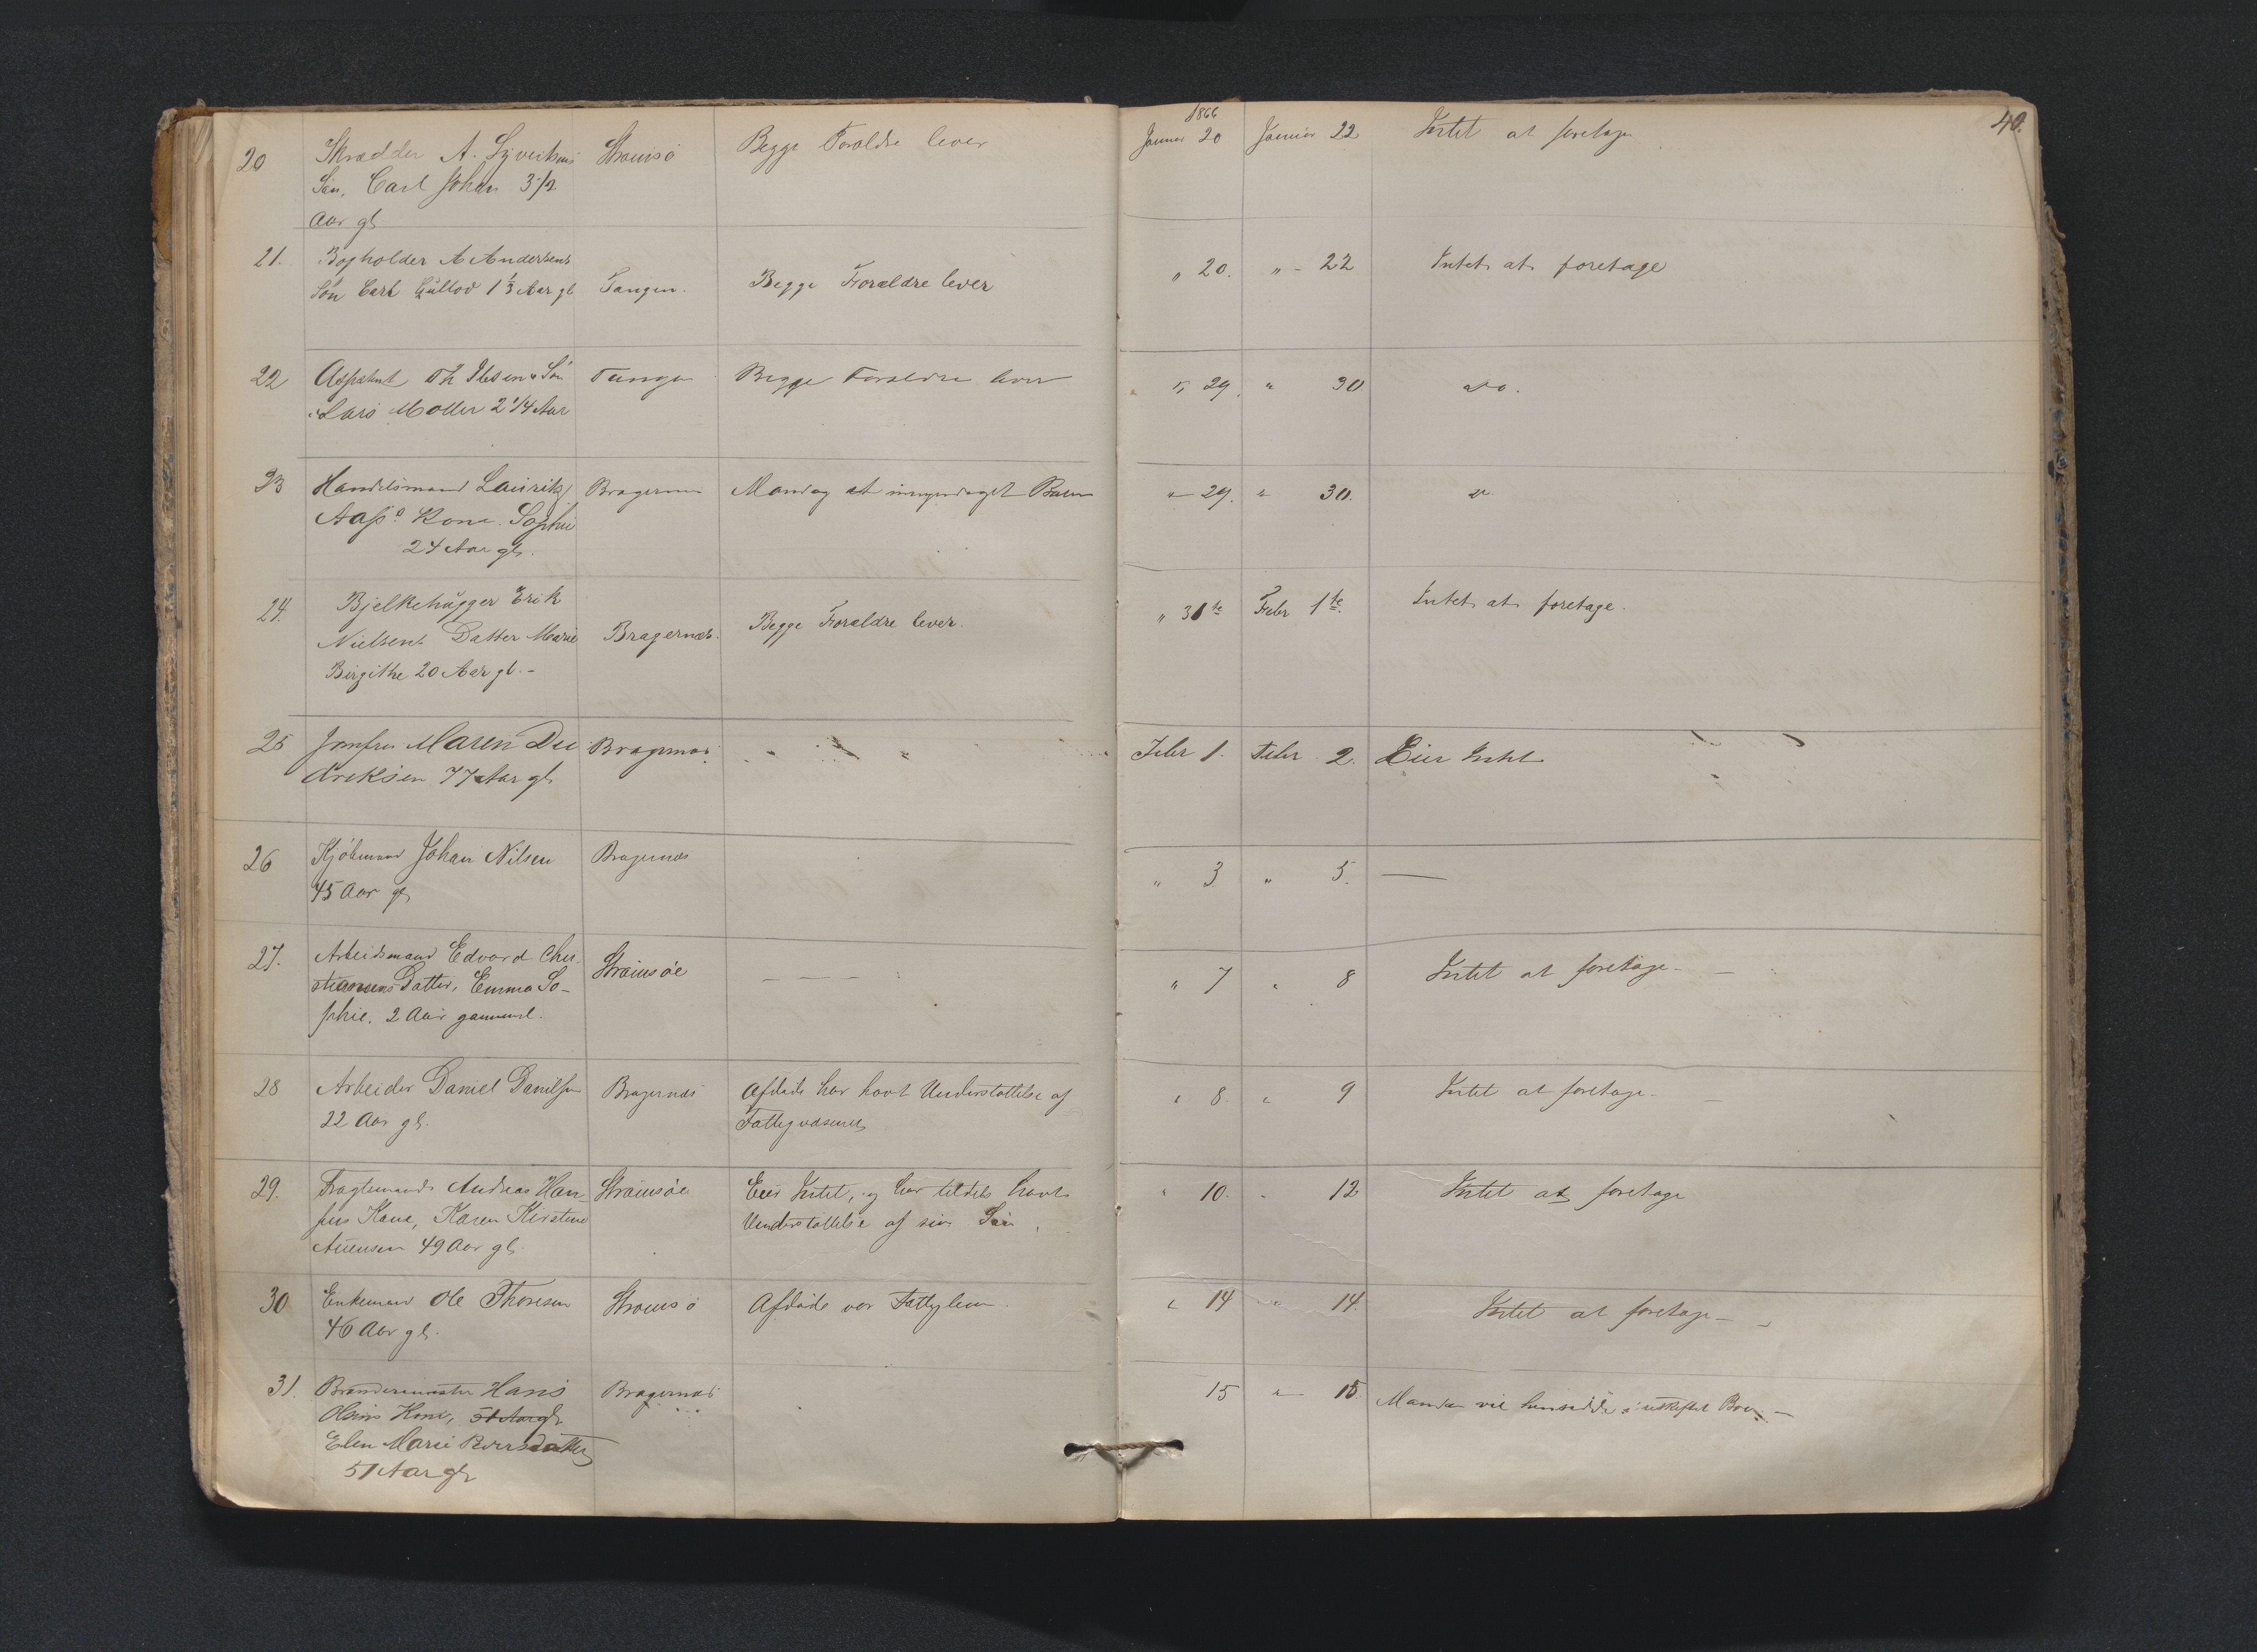 1866
40.
20 Skrædder A. Syvertsens Strømsø Begge Forældre lever Januar 20 Januar 22 Intet at foretage
Søn, Carl Johan 3 1/2
Aar gl
21. Bogholder A Andersens
Søn Carl Gustav 1 1/3 Aar gl Tangen. Begge Forældre lever " 20. " - 22 Intet at foretage
22 Th Ibsens Søn Tangen Begge Forældre lever " 29. " 30 do.
Lars Møller 2 1/4 Aar
23 Handelsmand Laurits Bragernæs Mand og Børn " 29. " 30. do.
Kone Sophie
24 Aar gl.
24. Bjelkehugger Erik
Nielsens Datter Marie Bragernæs. Begge Forældre lever. " 31te Febr 1te. Intet at foretage.
Birgithe 20 Aar gl. -
25 Jomfru Maren Die Bragernæs. Febr 1. Febr 2. Eier Intet
driksen 77 Aar gl
26 Kjøbmand Johan Nilsen Bragernæs " 3 " 5. —
45 Aar gl
27. Arbeidsmand Edvard Chri- Strømsøe — — — " 7 " 8 Intet at foretage -
stiansens Datter, Emma So-
phie. 2 Aar gammel.
28 Arbeider Daniel Danielsen Bragernæs Afdøde har havt Understøttelse af " 8. " 9 Intet at foretage -
22 Aar gl. Fattigvæsenet
29. Fragtemand Andreas Han- Strømsøe Eier Intet, og har tildels havt " 10. " 12 Intet at foretage
sens Kone, Karen Kirstine Understøttelse af sin Søn.
49 Aar gl.
30 Enkemand Ole Thoresen Strømsø Afdøde var Fattiglem. " 14 " 14. Intet at foretage -
46 Aar gl.
31. Hans Bragernæs 15 " 15. Manden vil hensidde i uskiftet Bo. —
Olsens Kone, 51 Aar gl.
Elen Marie
51 Aar gl